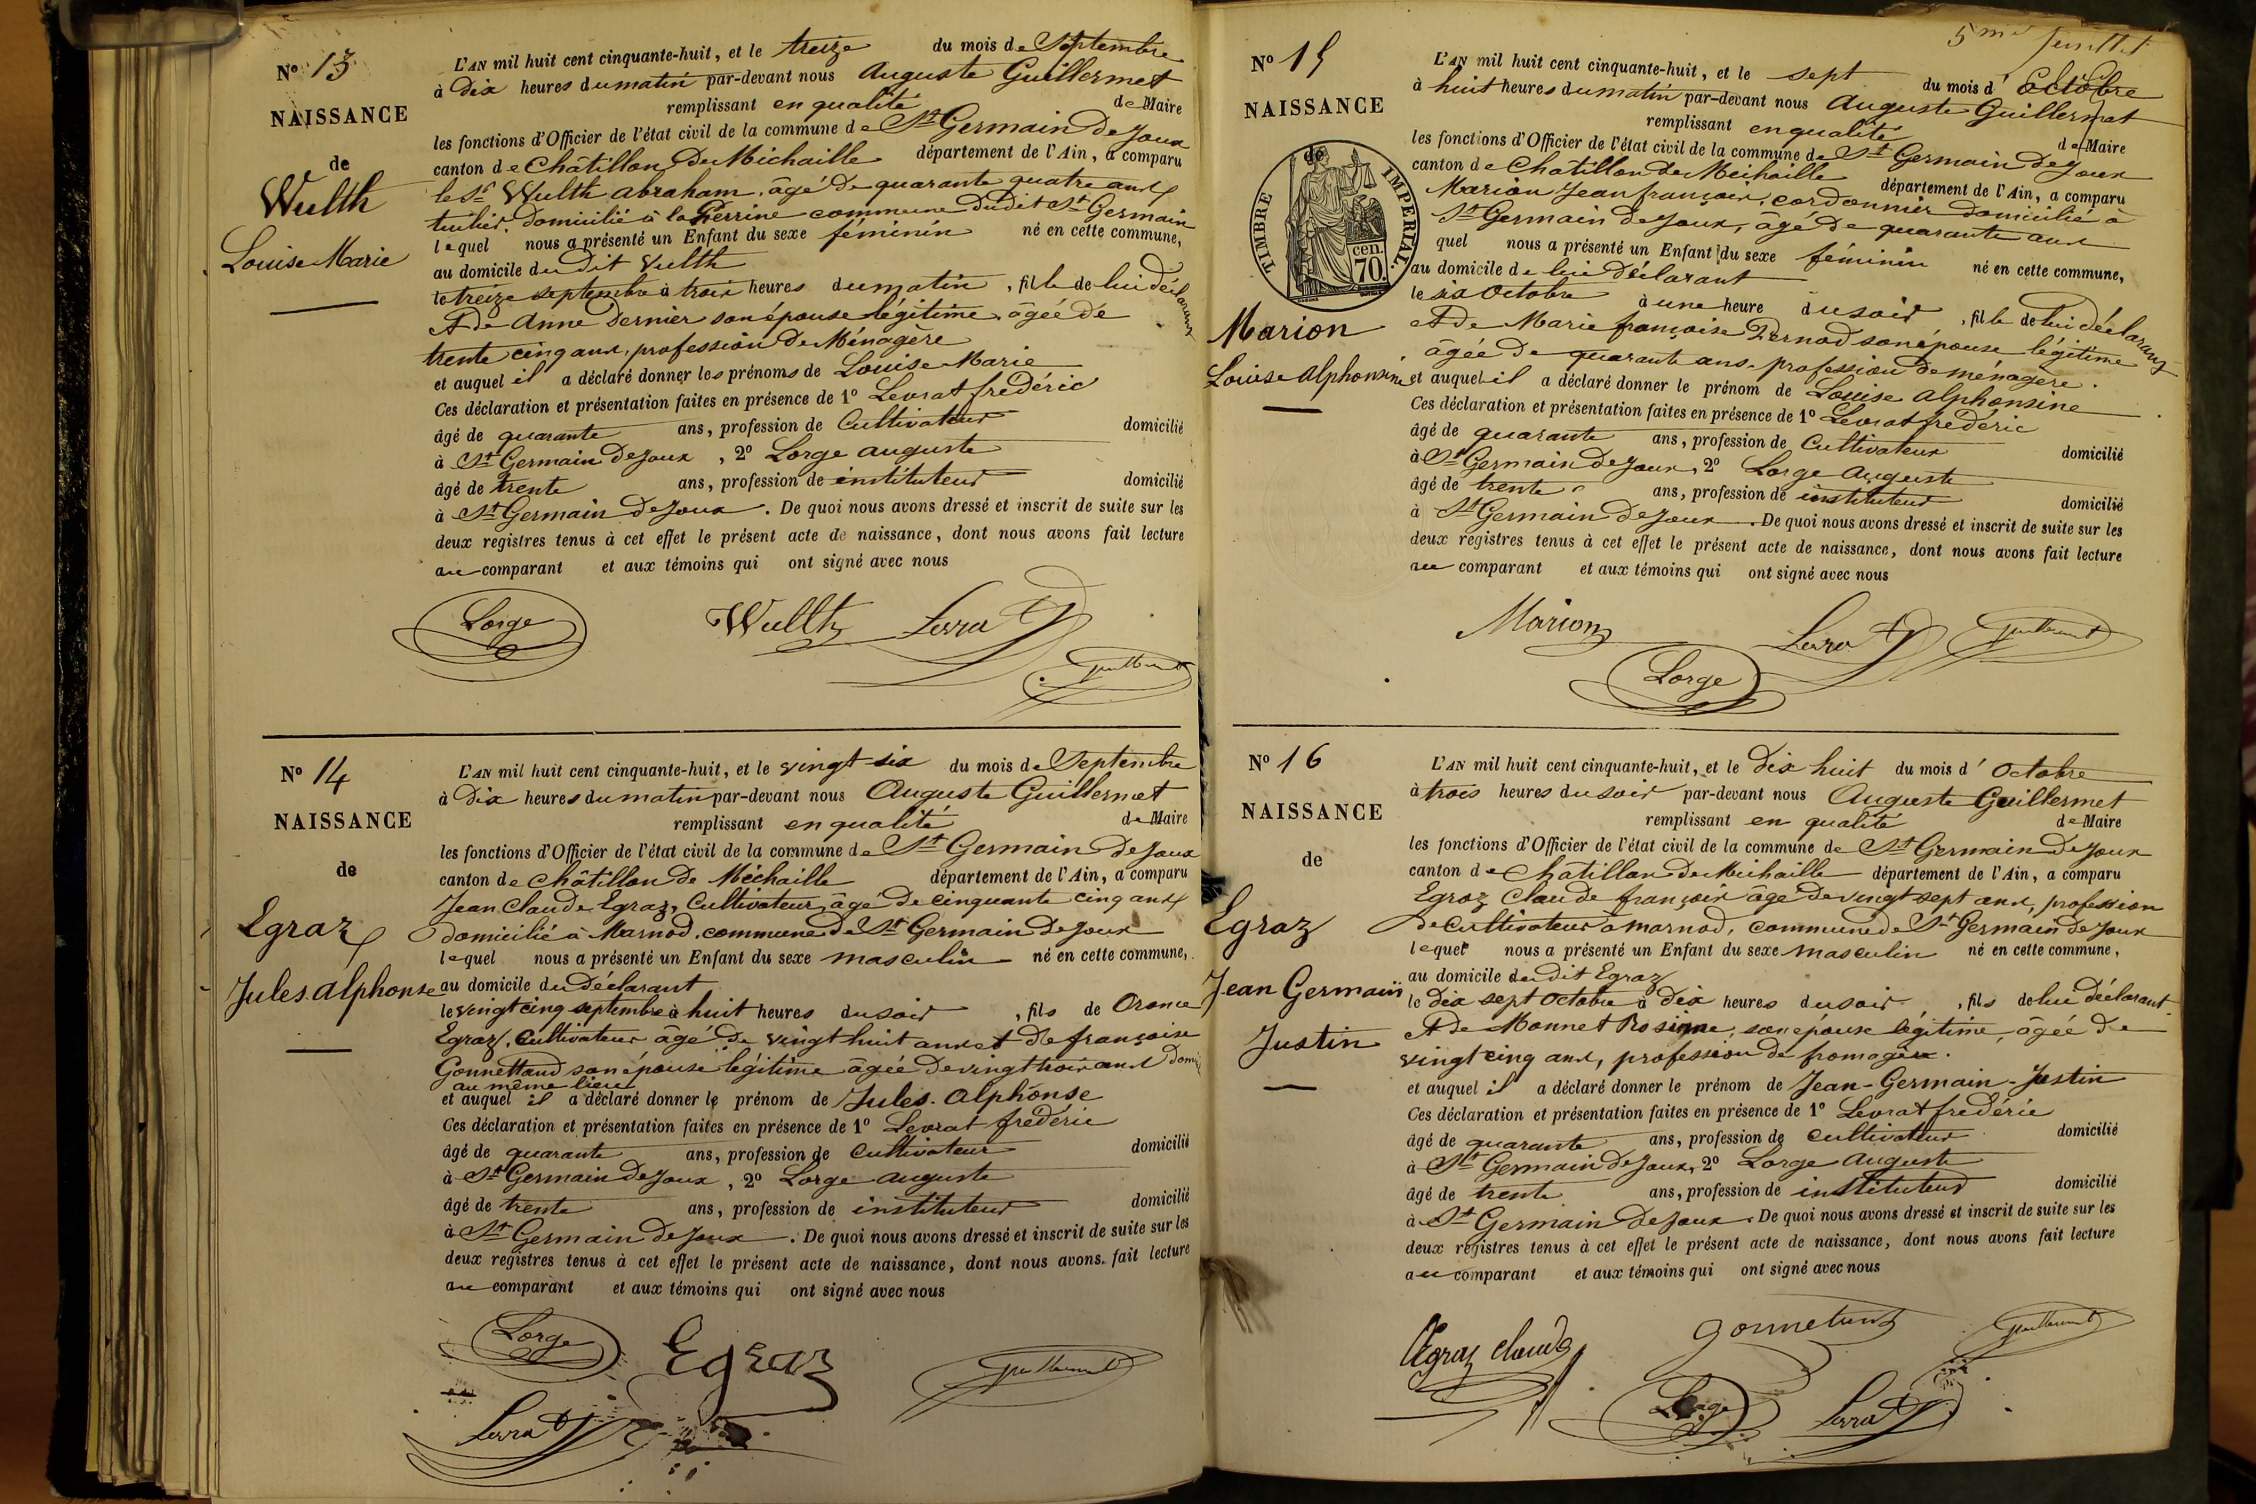 N° 13
NAISSANCE
de
Wulth
Louise Marie
L'AN mil huit cent cinquante-huit, et le treize du mois de Septembre
à dix heures du matin par-devant nous Auguste Guillermet
remplissant en qualité de Maire
les fonctions d'Officier de l'état civil de la commune de St Germain de Joux
canton de Châtillon de Michaille département de l'Ain, a comparu
le Sr Wulth abraham, âgé de quarante quatre ans
tuilier, domicilié à la Perrine commune dudit St Germain
lequel nous a présenté un Enfant du sexe féminin né en cette commune,
au domicile du dit Vulth
le treize septembre à trois heures du matin, fille de lui déclarant
Et de Anne Dernier son épouse légitime âgée de
trente cinq ans, profession de Ménagère
et auquel il a déclaré donner les prénoms de Louise Marie
Ces déclaration et présentation faites en présence de 1° Levrat frédéric
âgé de quarante ans, profession de Cultivateur domicilié
à St Germain de Joux, 2° Lorge auguste
âgé de trente ans, profession de instituteur domicilié
à St Germain de Joux. De quoi nous avons dressé et inscrit de suite sur les
deux registres tenus à cet effet le présent acte de naissance, dont nous avons fait lecture
au comparant et aux témoins qui ont signé avec nous
Lorge Wullth Levrat
Guillermet
N° 14
NAISSANCE
de
Egraz
Jules alphonse
L'AN mil huit cent cinquante-huit, et le vingt six du mois de Septembre
à dix heures du matin par-devant nous Auguste Guillermet
remplissant en qualité de Maire
les fonctions d'Officier de l'état civil de la commune de St Germain de Joux
canton de Châtillon de Michaille département de l'Ain, a comparu
Jean Claude Egraz, Cultivateur, âgé de cinquante cinq ans
domicilié à Marnod, commune de St Germain de Joux
lequel nous a présenté un Enfant du sexe masculin né en cette commune,
au domicile du déclarant
le vingt cinq septembre à huit heures du soir, fils de Oronce
Egraz, Cultivateur âgé de vingt huit ans et de françoise
Gonnettand son épouse légitime âgée de vingt trois ans
au même lieu
et auquel il a déclaré donner le prénom de Jules. Alphonse
Ces déclaration et présentation faites en présence de 1° Levrat frédéric
âgé de quarante ans, profession de Cultivateur domicilié
à St Germain de Joux, 2° Lorge auguste
âgé de trente ans, profession de instituteur domicilié
à St Germain de Joux. De quoi nous avons dressé et inscrit de suite sur les
deux registres tenus à cet effet le présent acte de naissance, dont nous avons fait lecture
au comparant et aux témoins qui ont signé avec nous
Lorge Egraz Guillermet
Levrat
5me feuillet
N° 15
NAISSANCE
TIMBRE IMPERIAL.
70 cen.
Marion
Louise alphonsine
L'AN mil huit cent cinquante-huit, et le sept du mois d'Octobre
à huit heures du matin par-devant nous Auguste Guillermet
remplissant en qualité de Maire
les fonctions d'Officier de l'état civil de la commune de St Germain de Joux
canton de Chatillon de Michaille département de l'Ain, a comparu
Marion Jean françois, cordonnier domicilié à
St Germain de Joux, âgé de quarante ans
quel nous a présenté un Enfant du sexe féminin né en cette commune,
au domicile de lui déclarant
le six Octobre à une heure du soir, fille de lui déclarant
Et de Marie françoise Pernod son épouse légitime
âgée de quarante ans, profession de ménagère.
et auquel il a déclaré donner le prénom de Louise Alphonsine
Ces déclaration et présentation faites en présence de 1° Levrat frédéric
âgé de quarante ans, profession de Cultivateur domicilié
à St Germain de Joux, 2° Lorge Auguste
âgé de trente ans, profession de instituteur domicilié
à St Germain de Joux. De quoi nous avons dressé et inscrit de suite sur les
deux registres tenus à cet effet le présent acte de naissance, dont nous avons fait lecture
au comparant et aux témoins qui ont signé avec nous
Marion Levrat Guillermet
Lorge
N° 16
NAISSANCE
de
Egraz
Jean Germain
Justin
L'AN mil huit cent cinquante-huit, et le dix huit du mois d'Octobre
à trois heures du soir par-devant nous Auguste Guillermet
remplissant en qualité de Maire
les fonctions d'Officier de l'état civil de la commune de St Germain de Joux
canton de Chatillon de Michaille département de l'Ain, a comparu
Egraz Claude françois âgé de vingt sept ans, profession
de cultivateur à marnod, commune de St Germain de Joux
lequel nous a présenté un Enfant du sexe masculin né en cette commune,
au domicile du dit Egraz
le dix sept Octobre à dix heures du soir, fils de lui déclarant
Et de Monnet Rosinne, son épouse légitime, âgée de
vingt cinq ans, profession de fromagère.
et auquel il a déclaré donner le prénom de Jean-Germain-Justin
Ces déclaration et présentation faites en présence de 1° Levrat frédéric
âgé de quarante ans, profession de cultivateur domicilié
à St Germain de Joux, 2° Lorge Auguste
âgé de trente ans, profession de instituteur domicilié
à St Germain de Joux. De quoi nous avons dressé et inscrit de suite sur les
deux registres tenus à cet effet le présent acte de naissance, dont nous avons fait lecture
au comparant et aux témoins qui ont signé avec nous
Egraz Claude Guillermet
Lorge Levrat